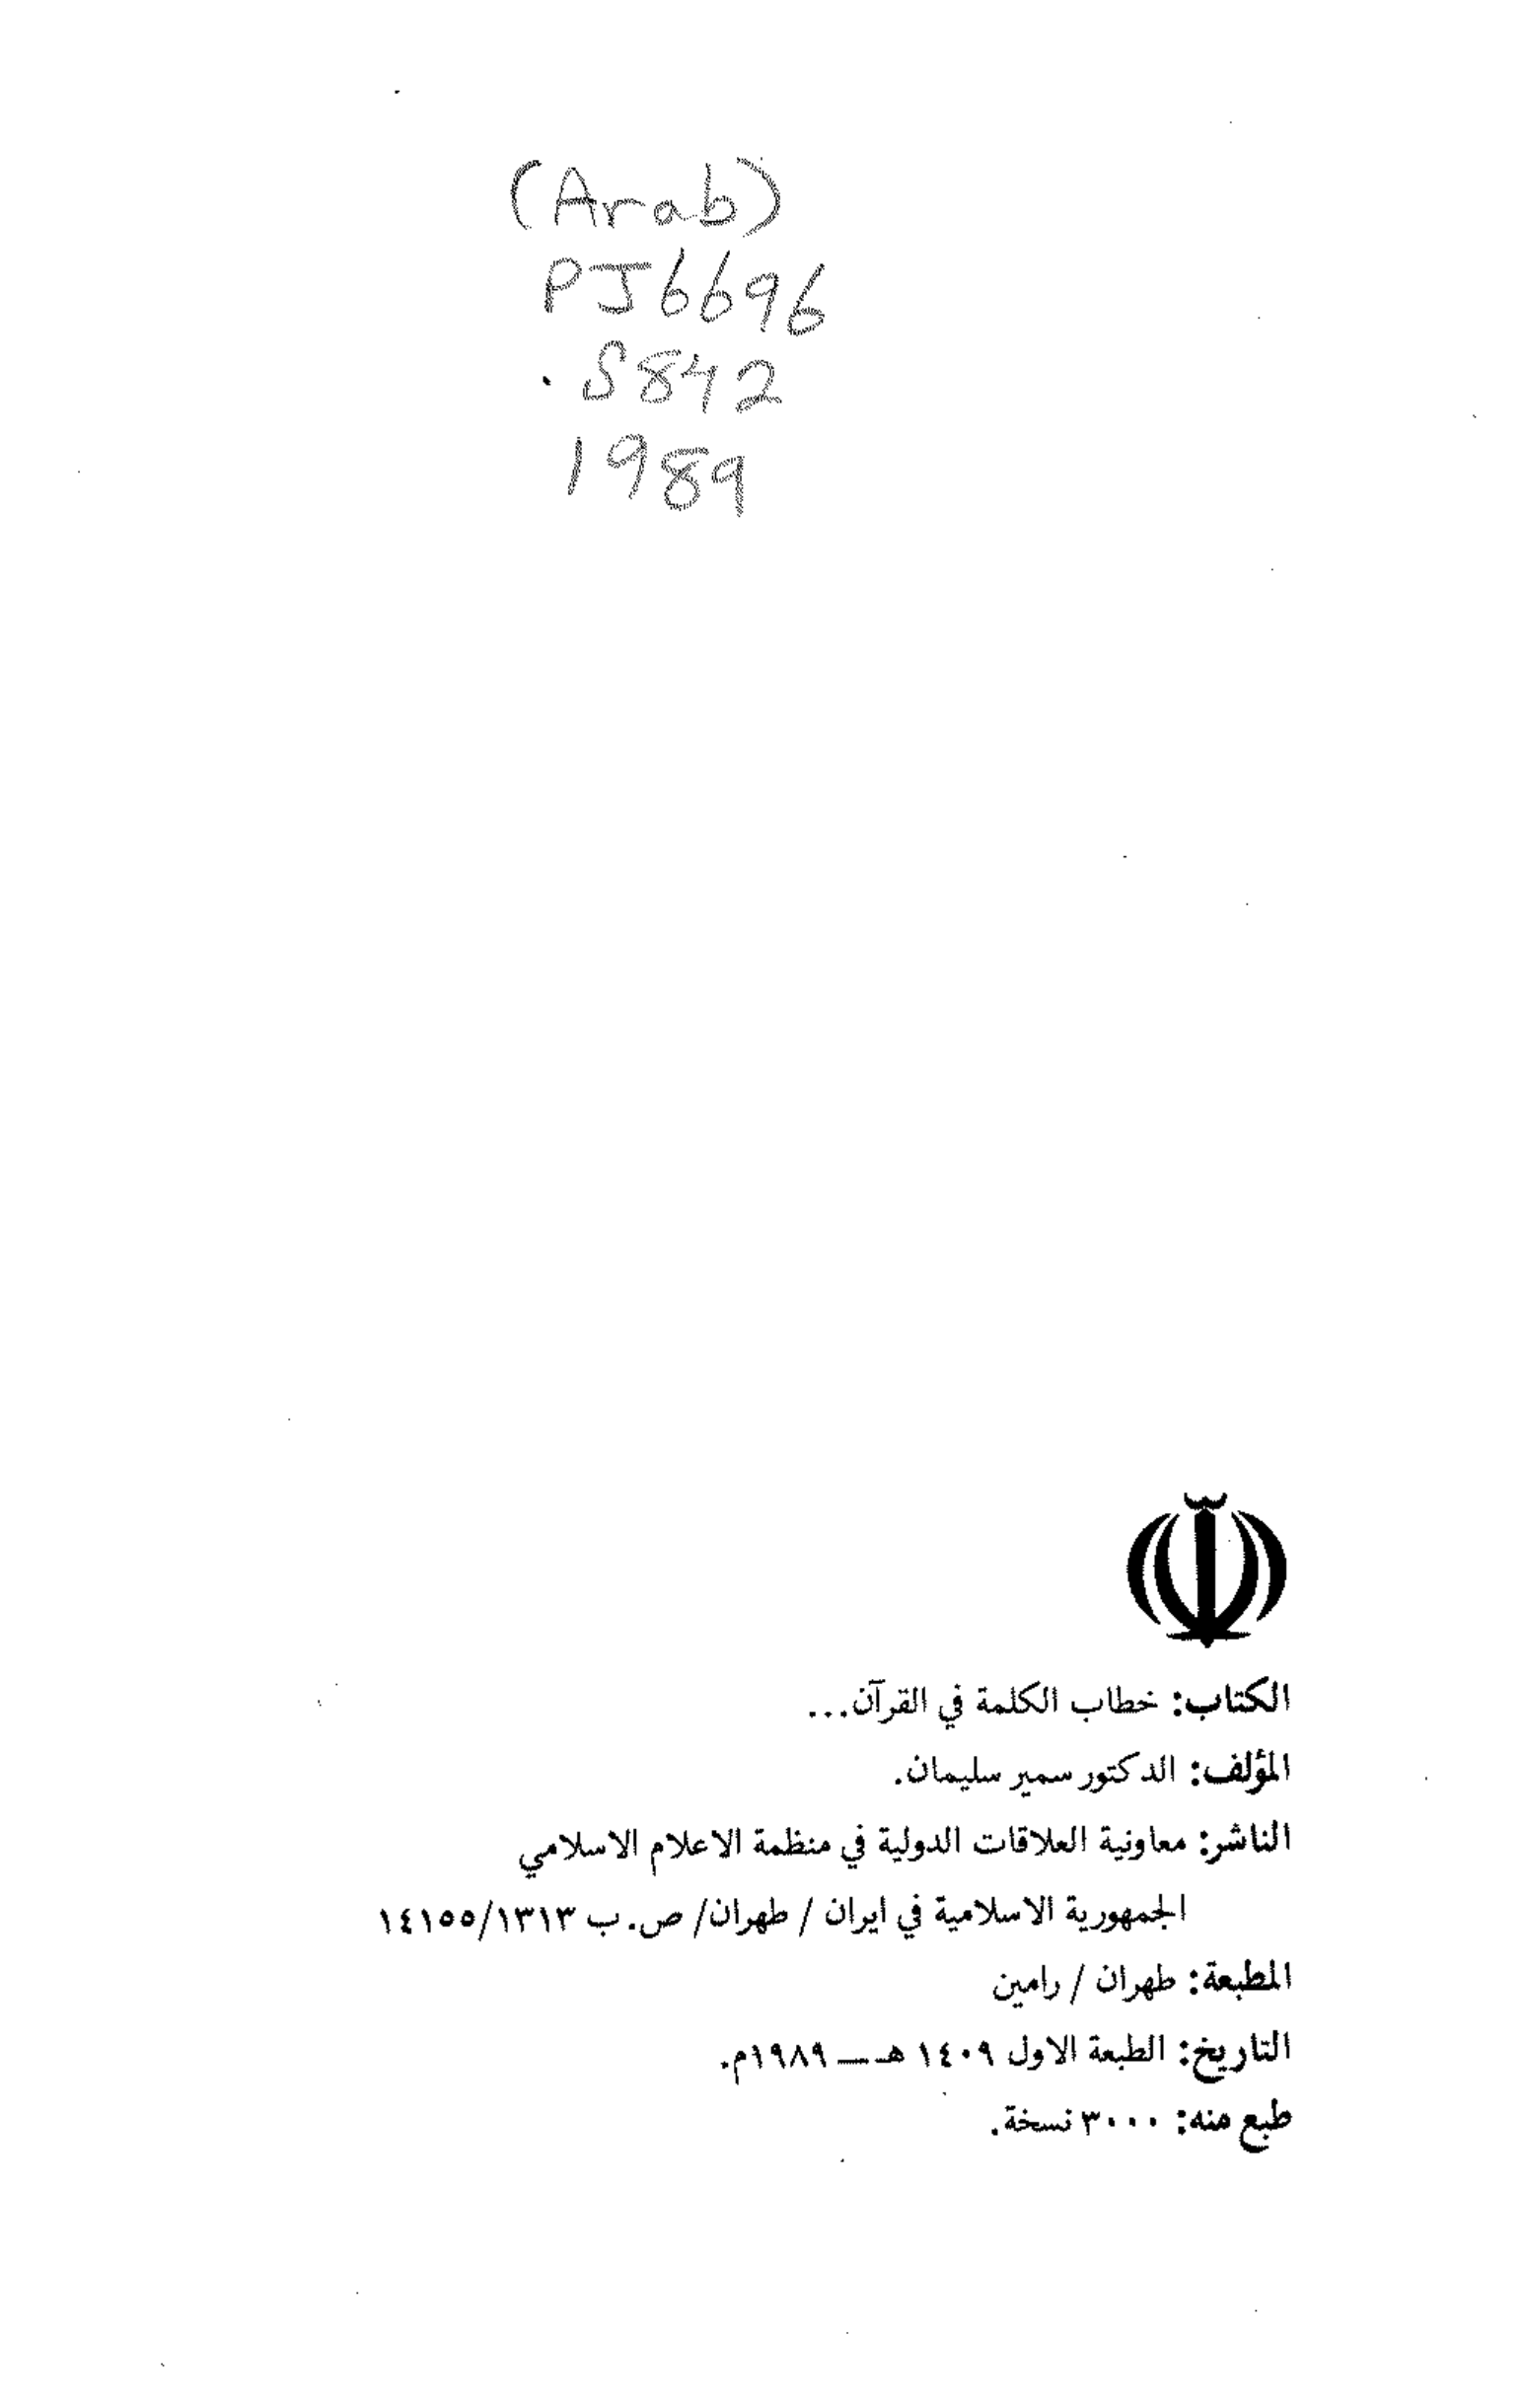 (Arab)
PJ6696
.S842
1989
الكتاب: خطاب الكلمة في القرآن...
المؤلف: الدكتور سمير سليمان.
الناشر: معاونية العلاقات الدولية في منظمة الاعلام الاسلامي
الجمهورية الاسلامية في ايران / طهران/ ص.ب ١٤١٥٥/١٣١٣
المطبعة: طهران / رامين
التاريخ: الطبعة الاول ١٤٠٩ هـ — ١٩٨٩م.
طبع منه: ٣٠٠٠ نسخة.